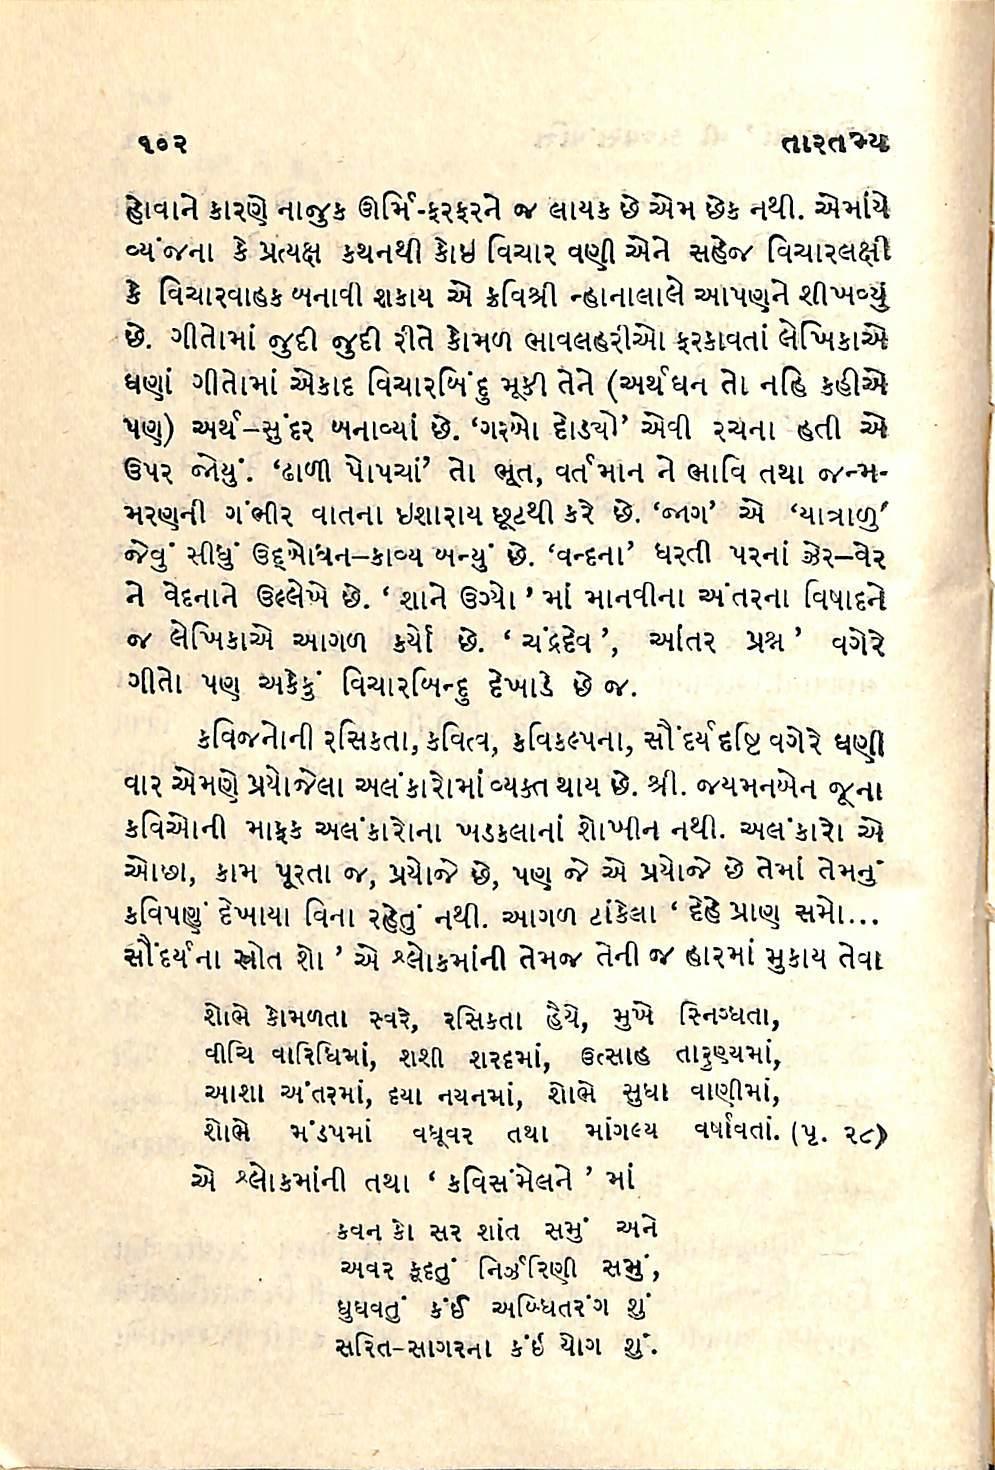 ૧૦૨ તારતમ્ય
હોવાને કારણે નાજુક ઊર્મિ-ફરફરને જ લાયક છે એમ છેક નથી. એમાંયે
વ્યંજના કે પ્રત્યક્ષ કથનથી કોઇ વિચાર વણી એને સહેજ વિચારલક્ષી
કે વિચારવાહક બનાવી શકાય એ કવિશ્રી ન્હાનાલાલે આપણને શીખવ્યું
છે. ગીતોમાં જુદી જુદી રીતે કોમળ ભાવલહરીઓ ફરકાવતાં લેખિકાએ
ઘણાં ગીતોમાં એકાદ વિચારબિંદુ મૂકી તેને (અર્થઘન તો નહિ કહીએ
પણ) અર્થ–સુંદર બનાવ્યાં છે. ‘ગરબો દોડ્યો’ એવી રચના હતી એ
ઉપર જોયું. ‘ઢાળી પોપચાં’ તો ભૂત, વર્તમાન ને ભાવિ તથા જન્મ-
મરણની ગંભીર વાતના ઇશારાય છૂટથી કરે છે. ‘જાગ’ એ ‘યાત્રાળુ’
જેવું સીધું ઉદ્બોધન–કાવ્ય બન્યું છે. ‘વન્દના’ ધરતી પરનાં ઝેર–વેર
ને વેદનાને ઉલ્લેખે છે. ‘ શાને ઉગ્યો ’ માં માનવીના અંતરના વિષાદને
જ લેખિકાએ આગળ કર્યો છે. ‘ ચંદ્રદેવ ’, આંતર પ્રશ્ન ’ વગેરે
ગીતો પણ અકેકું વિચારબિન્દુ દેખાડે છે જ.
કવિજનોની રસિકતા, કવિત્વ, કવિકલ્પના, સૌંદર્યદૃષ્ટિ વગેરે ઘણી
વાર એમણે પ્રયોજેલા અલંકારોમાં વ્યક્ત થાય છે. શ્રી. જયમનબેન જૂના
કવિઓની માફક અલંકારોના ખડકલાનાં શોખીન નથી. અલંકારો એ
ઓછા, કામ પૂરતા જ, પ્રયોજે છે, પણ જે એ પ્રયોજે છે તેમાં તેમનું
કવિપણું દેખાયા વિના રહેતું નથી. આગળ ટાંકેલા ‘ દેહે પ્રાણ સમો...
સૌંદર્યના સ્રોત શો ’ એ શ્લોકમાંની તેમજ તેની જ હારમાં મુકાય તેવા
શોભે કોમળતા સ્વરે, રસિકતા હૈયે, મુખે સ્નિગ્ધતા,
વીચિ વારિધિમાં, શશી શરદમાં, ઉત્સાહ તારુણ્યમાં,
આશા અંતરમાં, દયા નયનમાં, શોભે સુધા વાણીમાં,
શોભે મંડપમાં વધૂવર તથા માંગલ્ય વર્ષાવતાં. (પૃ. ૨૮)
એ શ્લોકમાંની તથા ‘ કવિસંમેલને ’ માં
કવન કો સર શાંત સમું અને
અવર કૂદતું નિર્ઝરિણી સમું,
ઘુઘવતું કંઈ અબ્ધિતરંગ શું
સરિત-સાગરના કંઇ યોગ શું.